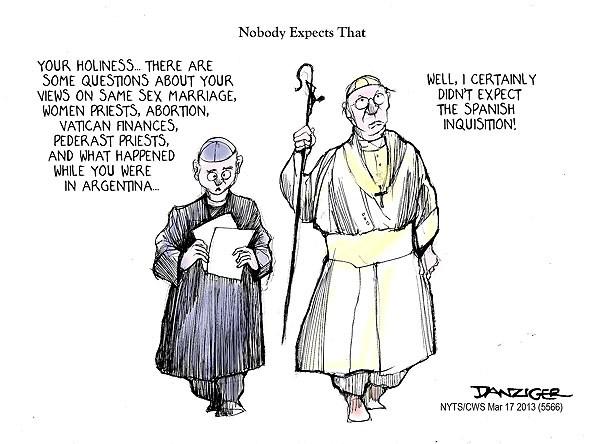 Nobody Expects That
YOUR HOLINESS... THERE ARE
SOME QUESTIONS ABOUT YOUR
VIEWS ON SAME SEX MARRIAGE,
WOMEN PRIESTS, ABORTION,
VATICAN FINANCES,
PEDERAST PRIESTS,
AND WHAT HAPPENED
WHILE YOU WERE
IN ARGENTINA...
WELL, I CERTAINLY
DIDN'T EXPECT
THE SPANISH
INQUISITION!
DANZIGER
NYTS/CWS Mar 17 2013 (5566)